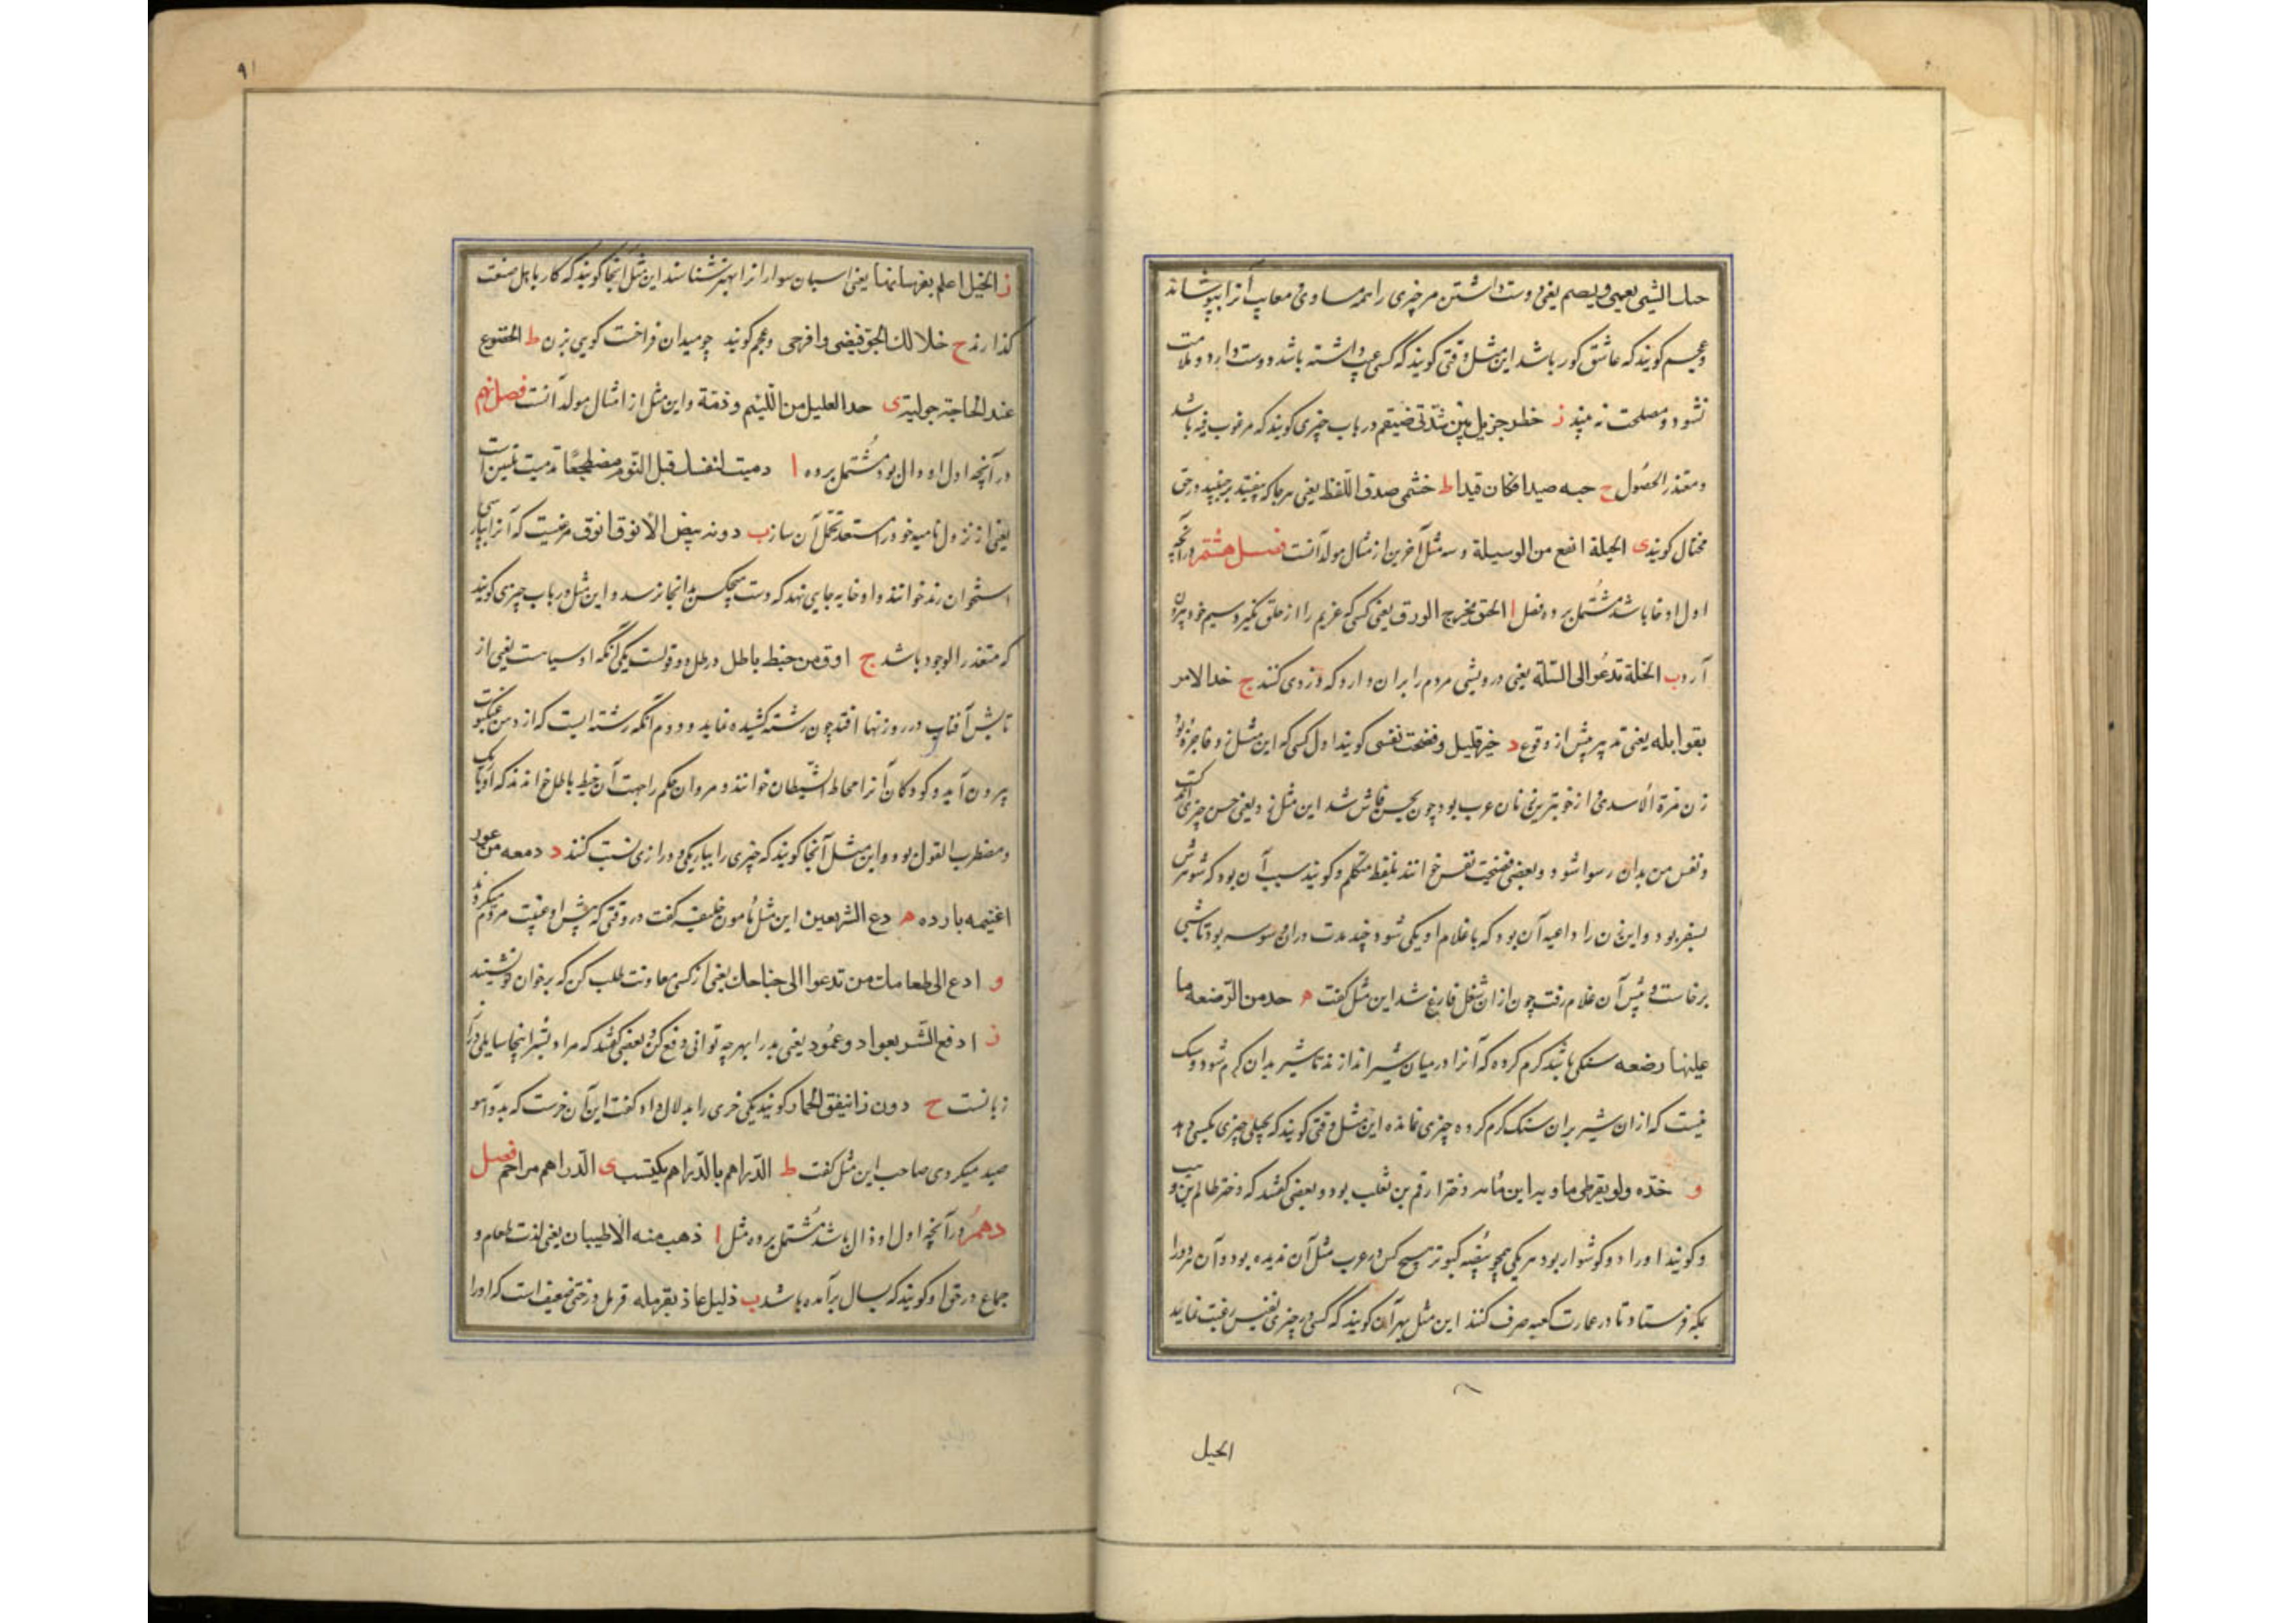 حبك الشیء یعمی ویصم یعنی دوست داشتن مر چیزی را همه مساوی و معایب آنرا بپوشاند
و عجم کویند که عاشق کور باشد این مثل وقتی کویند که کسی عیب داشته باشد دوست دارد و ملامت
نشنود و مصلحت نه بیند ز خطر جزیل بین شدتی ضیقم در باب چیزی کویند که مرغوب فیه باشد
و متعذر الحصول ح حبه صیدا فکان قیدا ط خشمی صدق اللفظ یعنی هر جا که در حق
محتال کویند ی الحیلة انفع من الوسیلة و سه مثل آخرین از مثال مولد آنست فصل هشتم در آنچه
اول او خا باشد مشتمل بر ده فصل ا الحق یخرج الورق یعنی کسی که غریم را از حلق بکیرد سیم خود بیرون
آرد ب الخلة تدعو الی السلة یعنی درویشی مردم را بران دارد که دزدی کنند ج خذ الامر
بقوابله یعنی تدبیر پیش از وقوع د خیر قلیل و فضحت نفسی کویند اول کسی که این مثل زد فاجره بود
زن مرة الاسدی و از خوبترین زنان عرب بود چون بحسن فاش شد این مثل زد یعنی حسن چیزی اندکست
و نفس من بدان رسوا شود و بعضی فضحیت نفس خوانند بلفظ متکلم و کویند سبب آن بود که شوهرش
بسفر بود و این زن را داعیه آن بود که با غلام او یکی شود چند مدت دران وسوسه بود تا شبی
برخاست و پیش آن غلام رفت چون ازان شغل فارغ شد این مثل کفت ه خذ من الرضعه ما
علیها رضعه سنکی باشد کرم کرده که آنرا در میان شیر اندازند تا شیر بدان کرم شود و شک
نیست که ازان شیر بران سنک کرم کرده چیزی نمانده این مثل وقتی کویند که بخیلی چیزی بکسی دهد
و خذه ولو بقرطی ماریه این ماریه دختر ارقم بن ثعلب بود و بعضی کفتند که دختر ظالم بن وهب
و کویند او را دو کوشوار بود هر یکی همچو بیضه کبوتر هیچ کس در عرب مثل آن ندیده بود و آن هر دو را
بمکه فرستاد تا در عمارت کعبه صرف کنند این مثل بهر آن کویند که کسی در چیزی نفیس رغبت نماید
الخیل
۹۱
ز الخیل اعلم بفرسانها یعنی اسبان سوارانرا بهتر شناسند این مثل اینجا کویند که کار باهل صنعت
کذارند ح خلا لك الجو فبیضی وافرخی و عجم کویند چو میدان فراخت کویی بزن ط الخضوع
عند الحاجة جولیة ی خذ القلیل من اللئیم و ذمة و این مثل از امثال مولد آنست فصل نهم
در آنچه اول او دال بود مشتمل بر ده ا دمیت لنفسك قبل النوم مضطجعا تدمیت تلیین است
یعنی از نزول نامیه خود را مستعد تحمل آن ساز ب دونه بیض الانوق انوق مرغیست که آنرا بپارسی
استخوان رند خوانند و او خایه جایی نهد که دست هیچکس بدانجا نرسد و این مثل در باب چیزی کویند
که متعذر الوجود باشد ج ادق من خیط باطل درطل دو قولست یکی آنکه او سیاست یعنی از
تابش آفتاب در روزنها افتد چون رشته کشیده نماید و دوم آنکه رشته ایست که از دهن عنکبوت
بیرون آید و کودکان آنرا مخاط الشیطان خوانند و مروان حکم را جهت آن خیط باطل خواندند که او باریک
و مضطرب القول بود و این مثل آنجا کویند که چیزی را بباریکی و درازی نسبت کنند د دمعه من عور
اغنیمه بارده ه دع الشر یعبر این مثل مامون خلیفه کفت در وقتی که پیش او غیبت مردم میکردند
و ادع الی طعامك من تدعوا الی جناحك یعنی از کسی معاونت طلب کن که بر خوان تو نشیند
ز ادفع الشر بعود او عمود یعنی بد را بهر چه توانی دفع کن و بعضی کفتند که مراد بشر اینجا سایلی دراز
زبانست ح دون ذا ینفق الحمار کویند یکی خری را بدلال داد کفت این آن خرست که بدو آهو
صید میکردی صاحب این مثل کفت ط الدراهم بالدراهم یکتسب ی الدراهم مراهم فصل
دهم در آنچه اول او ذال باشد مشتمل بر ده مثل ا ذهب منه الاطیبان یعنی لذت طعام و
جماع در حق او کویند که بسال برآمده باشد ب ذلیل عاذ بقرمله قرمل درختی ضعیف است که او را